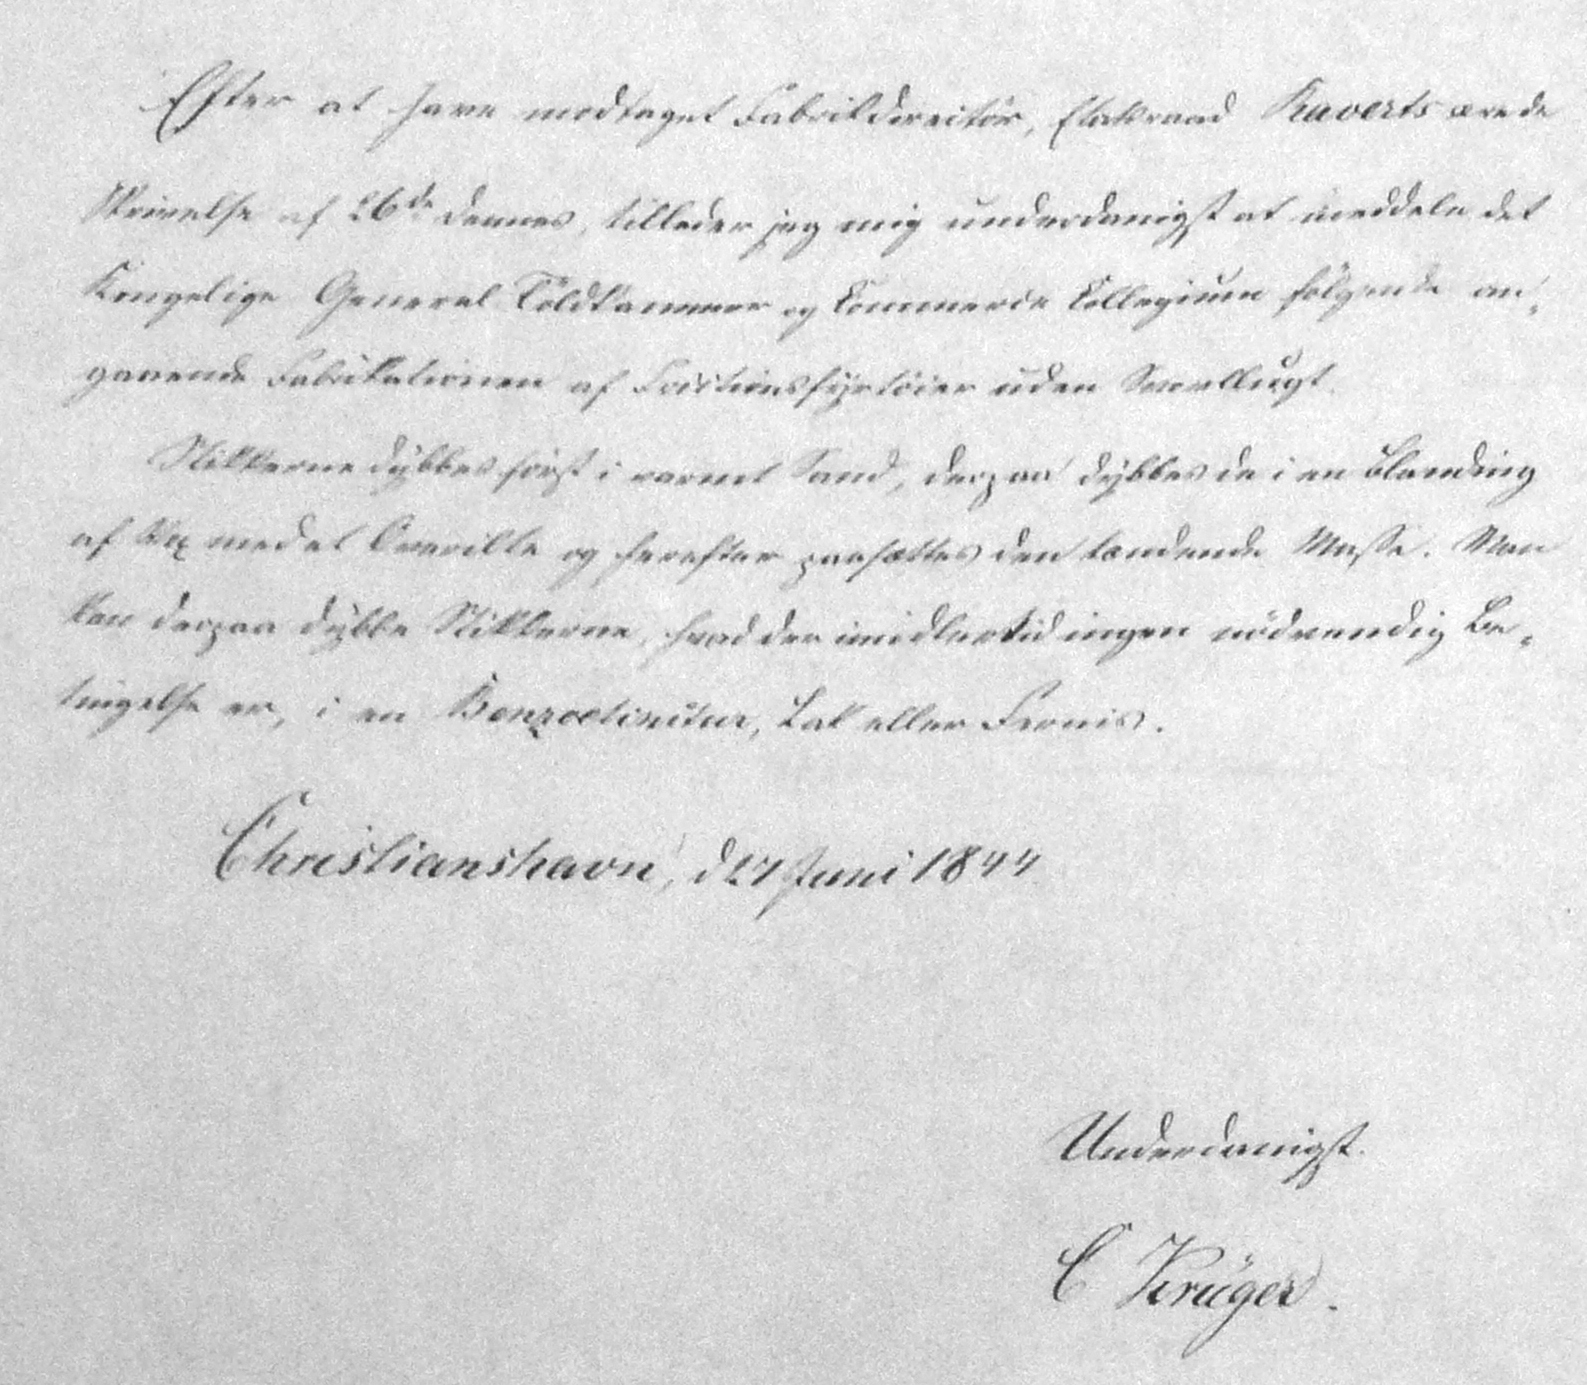 Efter at have modtaget Fabrikdirektör, Etatsraad Kaverts ærede
Skrivelse af 26de dennes, tillader jeg mig underdanigst at meddele det
Kongelige General Toldkammer og Commerce Collegium følgende an-
gaaende Fabrikationen af Frictionsfyrtöier uden Svovllugt.
Stikkerne dyppes först i varmt Sand, derpaa dyppes de i en Blanding
af Vox med et og herefter paasættes den tændende Masse. Man
kan derpaa dyppe Stikkerne, hvad der imidlertid ingen nödvendig Be-
tingelse er, i en Benzoetinctur, Lak eller Fernis.
Christianshavn, d 27 Juni 1844
Underdanigst.
C Krüger.